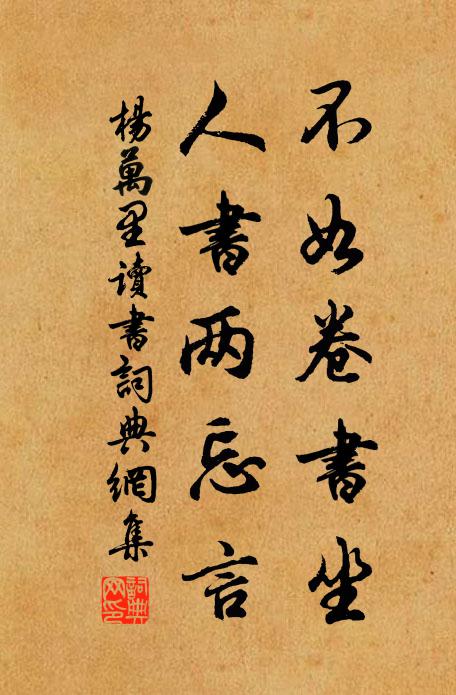 不如卷書坐
人書两忘言
楊萬里讀書詞典網集
詞典
网印